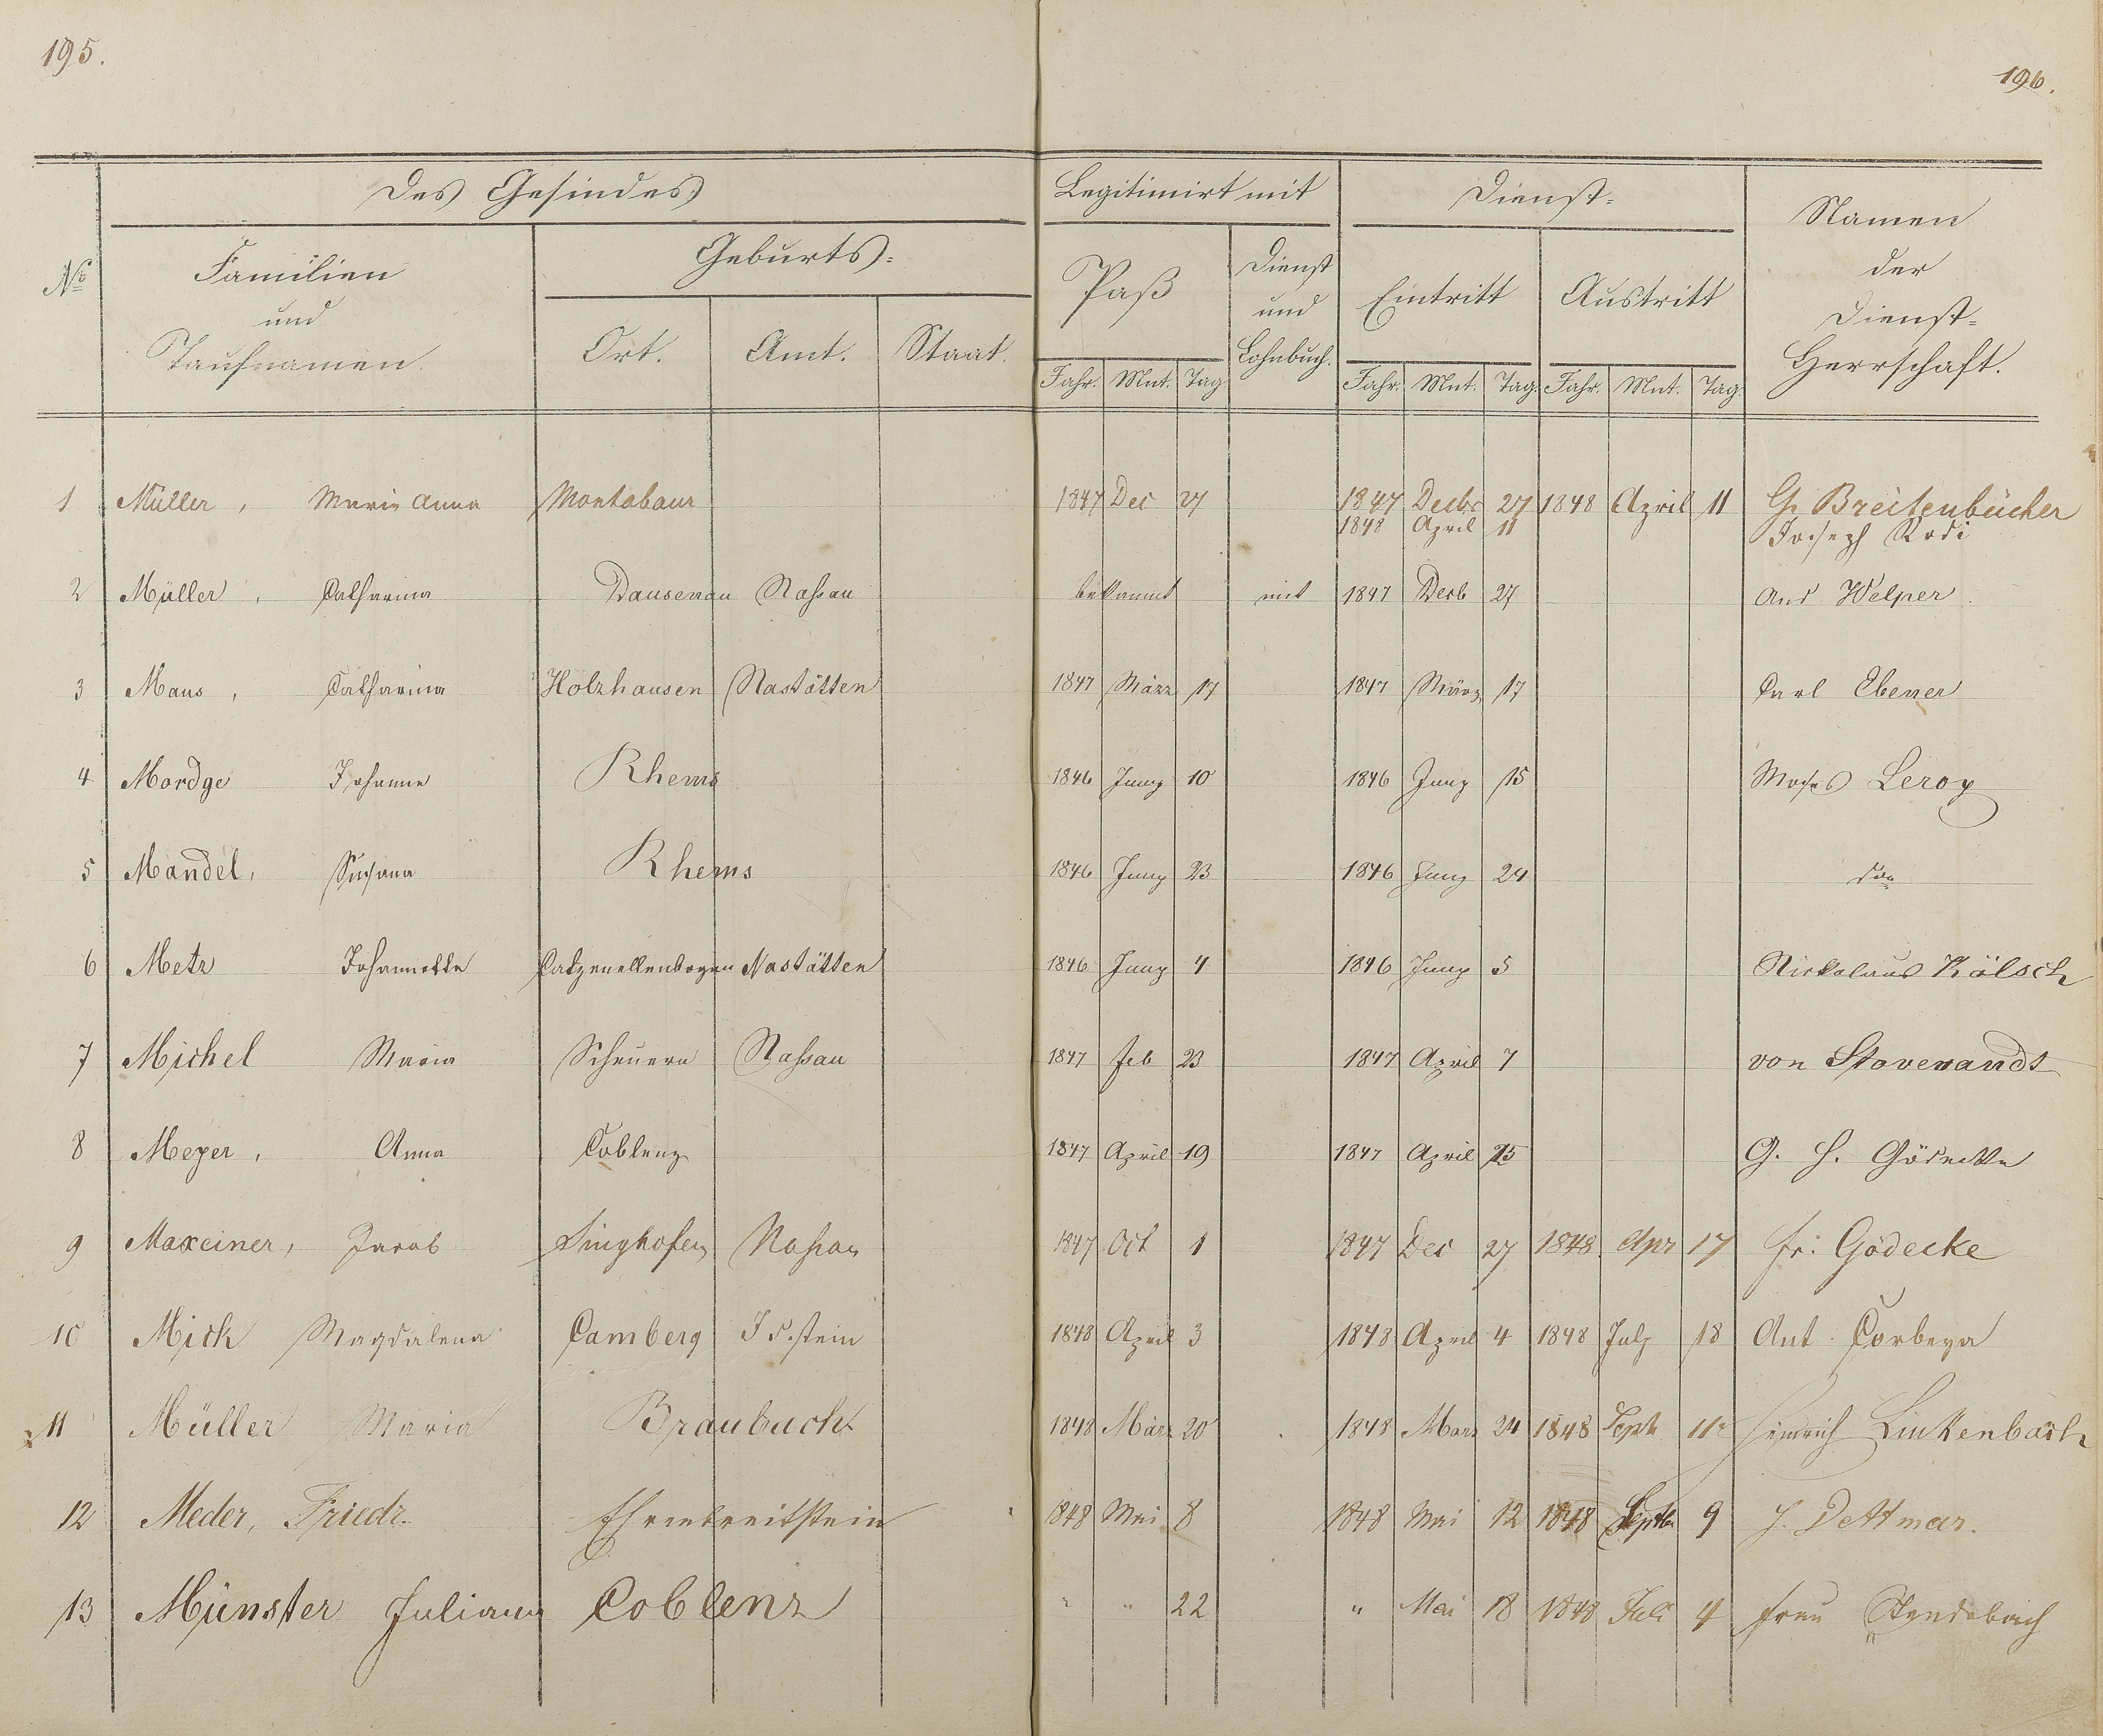 195.
196.
Des Gesindes
Legitimirt mit
Dienst-
Namen
der
Dienst-
Herrschaft.
No
Familien
und
Taufnamen.
Geburts-
Ort. Amt. Staat.
Paß
Dienst
und
Lohnbuch.
Eintritt
Austritt
Jahr. Mnt. Tag.
Jahr. Mnt. Tag. Jahr. Mnt. Tag.
1 Müller, Maria Anna Montabaur 1847 Dec 27 1847 Decbr 27 1848 April 11 G. Breitenbücher
1848 April 11 Joseph Rodi
2 Müller, Catharina Dausenau Nassau bekannt mit 1847 Decb 27 And Welper
3 Maus, Catharina Holzhausen Nastätten 1847 März 17 1847 März 17 Carl Ebener
4 Mordge Johanne Rhems 1846 Juny 10 1846 Juny 15 Moses Leroy
5 Mandel, Susana Rhems 1846 Juny 23 1846 Juny 24 do
6 Metz Johannette Catzenellenbogen Nastätten 1846 Juny 4 1846 Juny 5 Nickolaus Kölsch
7 Michel Maria Scheuern Nassau 1847 Feb 23 1847 April 7 von
8 Meyer, Anna Coblenz 1847 April 19 1847 April 25 G. H. Gödecke
9 Maxeiner, Jacob Singhofen Nassau 1847 Oct 1 1847 Dec 27 1848 Apr 17 Fr: Gödecke
10 Mick Magdalena Camberg Idstein 1848 April 3 1848 April 4 1848 July 18 Ant. Corbeya
11 Müller Maria Braubach 1848 März 20 1848 Marz 24 1848 Septr 11 Heinrich Linkenbach
12 Meder, Friedr. Ehrenbreitstein 1848 Mai 8 1848 Mai 12 1848 Septbr 9 J. Dettmar.
13 Münster Juliana Coblenz " " 22 " Mai 18 1848 Juli 4 Frau